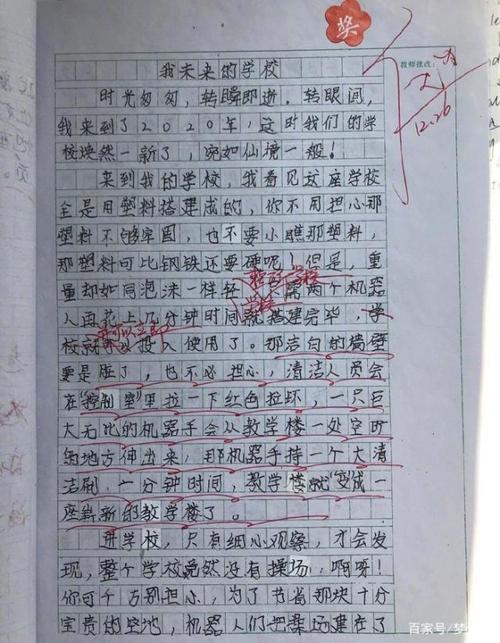 奖
教师批改:
12.26
我未来的学校
时光匆匆,转瞬即逝。转眼间,
我来到了2020年,这时我们的学
校焕然一新了,宛如仙境一般!
来到我的学校,我看见这座学校
全是用塑料搭建成的,你不用担心那
塑料不够牢固,也不要小瞧那塑料,
那塑料可比钢铁还要硬呢!但是,重
量却如同泡沫一样轻
整所学校
需两个机器
人再花上几分钟时间就搭建完毕,学
校就
可以立即
投入使用了。那洁白的墙壁
要是脏了,也不必担心,清洁人员会
在“控制室”里拉一下红色拉环,一只巨
大无比的机器手会从教学楼一处空旷
的地方伸出来,那机器手持一个大清
洁刷,一分钟时间,教学楼就变成一
座崭新的教学楼了。
进学校,只有细心观察,才会发
现,整个学校竟然没有操场,啊呀!
你可千万别担心,为了节省那块十分
宝贵的空地,机器人们把操场建在了
百家号/梦